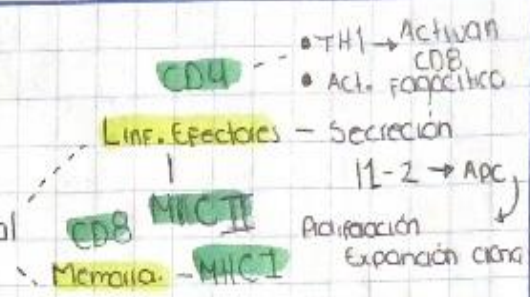 • TH1 → Activan
CD8
CD4
• Act. Fagocítica
Linf. Efectores — Secreción
Il-2 → APC
MHC II
CD8
Proliferación
Expansión clonal
Memoria. — MHC I